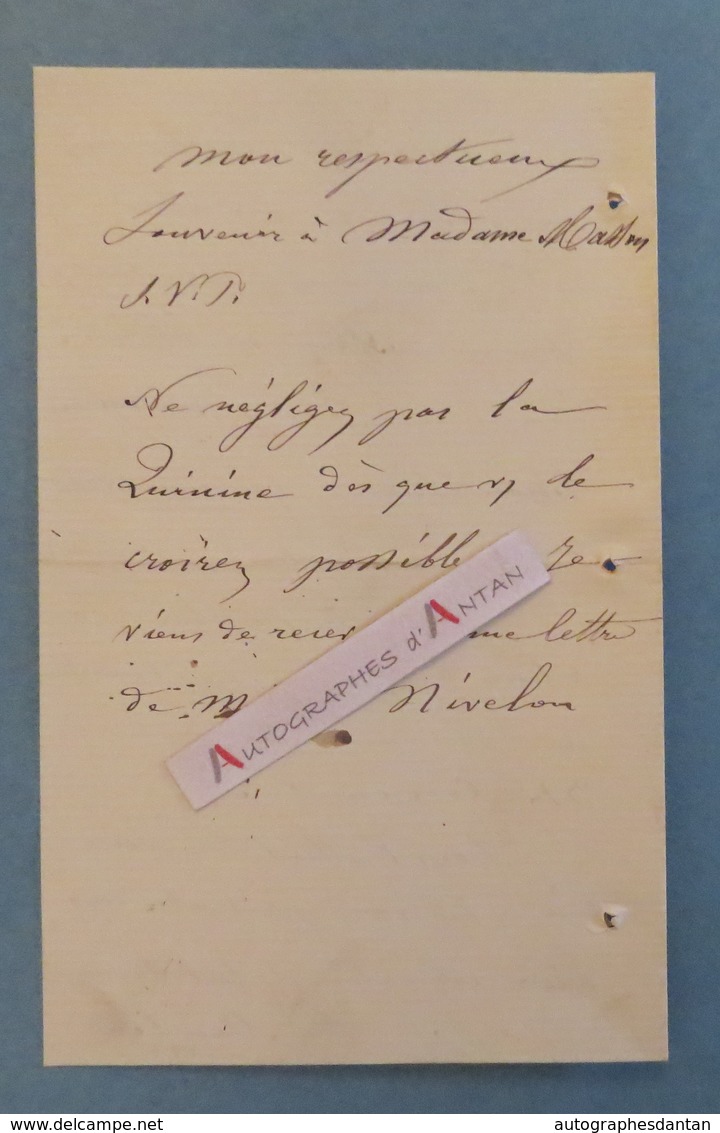 Mon respectueux
Souvenir à Madame Masson
S. V. P.
Ne négligez pas la
Quinine dès que vs le
croirez possible Je
viens de recev me lettre
de M Nivelon
AUTOGRAPHES d'ANTAN
delcampe.net
autographesdantan